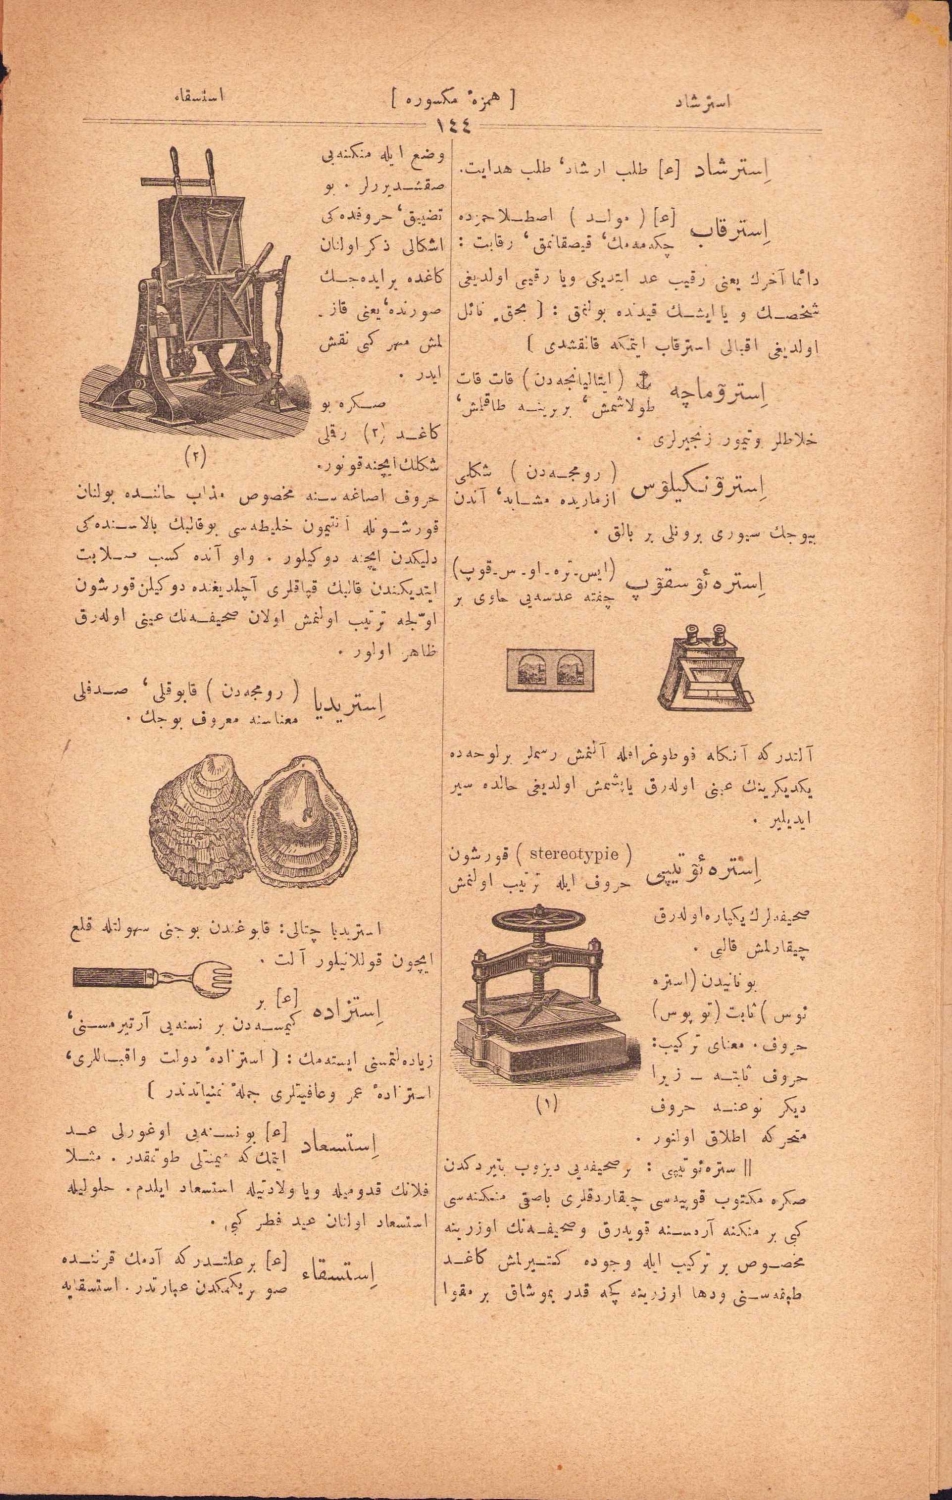 استرشاد
[ همزهٔ مكسوره ]
استسقاء
١٤٤
اِسترشاد [ع] طلب ارشاد، طلب هدايت.
اِسترقاب [ع] ( مولد ) اصطلاحمزده
چكه‌مه‌مك، قيصقانمق، رقابت :
دائما آخرك يعنى رقيب عد ايتديكى ويا رقيبى اولديغى
شخصك و يا ايشك قيدنده بولنمق : [ بحق نائل
اولديغى اقبالى استرقاب ايتمكه قالقشدى ]
اِسترۆماچه ⚓ ( ايتاليانجه‌دن ) قات قات
طولاشمش، بربرينه طاقلمش،
خلاطلر وتيمور زنجيرلرى .
اِسترۆنكيلۆس ( رومجه‌دن ) شكلى
ازماريده مشابه، آندن
بيوجك سيورى برونلى بر بالق .
اِستره‌ئۆسقۆپ (ايس.تره.او.س.قوپ)
چفته عدسه‌يى حاوى بر
آلتدركه آنكله فوطوغرافله آلنمش رسملر برلوحه‌ده
يكديكرينك عينى اوله‌رق ياپشمش اولديغى حالده سير
ايديلير .
اِستره‌ئۆتيپى ( stereotypie ) قورشون
حروف ايله ترتيب اولنمش
صحيفه‌لرك يكپاره اوله‌رق
چيقارلمش قالبى .
يونانيدن (استره
ئوس ) ثابت (تو پوس)
حروف. معناى تركيب:
حروف ثابته – زيرا
ديكر نوعنه حروف
متحركه اطلاق اولنور .
(١)
|| ستره‌ئوتيپى : برصحيفه‌يى ديزوب بتيردكدن
صكره مكتوب قوپيه‌سى چيقاردقلرى باصقى منكنه‌سى
كبى بر منكنه آره‌سنه قويه‌رق وصحيفه‌نك اوزرينه
مخصوص بر تركيب ايله وجوده كتيرلمش كاغد
طبقه‌سنى ودها اوزرينه پكه قدر يموشاق بر مقوا
وضع ايله منكنه‌يى
صقشديررلر . بو
تضييق، حروفده‌كى
اشكالى ذكر اولنان
كاغده بر ايده‌جك
صورتده، يعنى قاز-
لمش مهر كبى نقش
ايدر .
صكره بو
كاغد (٢) رقملى
شكلك ايچنه قونور.
(٢)
حروف اصاغه‌سنه مخصوص مذاب حالنده بولنان
قورشونله آنتيمون خليطه‌سى بوقالبك بالاسنده‌كى
دليكدن ايچنه دوكيلور . واو آنده كسب صلابت
ايتديكندن قالبك قپاقلرى آچلديغنده دوكيلن قورشون
اوّلجه ترتيب اولنمش اولان صحيفه‌نك عينى اوله‌رق
ظاهر اولور .
اِستريديا ( رومجه‌دن ) قابوقلى، صدفلى
معناسنه معروف بوجك .
استريديا چتالى: قابوغندن بوجنى سهولتله قلع
ايچون قوللانيلور آلت .
اِستزاده [ع] بر
كيمسه‌دن بر نسنه‌يى آرتيرمسنى،
زياده‌لتمسنى ايسته‌مك : [ استزادهٔ دولت واقباللرى،
استزادهٔ عمر وعافيتلرى جملهٔ تمنياتدندر ]
اِستسعاد [ع] بونسنه‌يى اوغورلى عد
ايتمك كه يمنتلى طوتمقدر . مثلا
فلانك قدوميله ويا ولادتيله استسعاد ايلدم. حلوليله
استسعاد اولنان عيد فطر كبى .
اِستسقاء [ع] بر علتدر كه آدمك قرننده
صو بريكمكدن عبارتدر . استسقايه